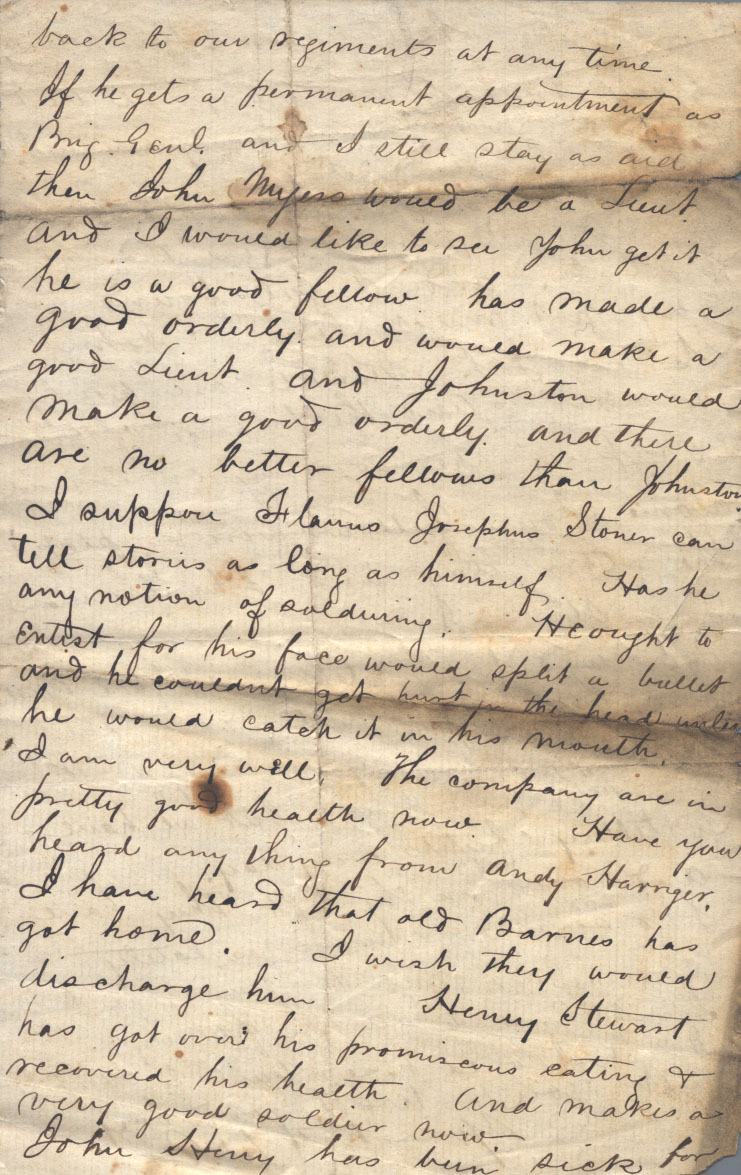 back to our regiments at any time.
If he gets a permanent appointment as
Brig. Genl. and I still stay as aid
then John Myers would be a Lieut.
and I would like to see John get it
he is a good fellow has made a
good orderly. and would make a
good Lieut. and Johnston would
make a good orderly. and there
are no better fellows than Johnston.
I suppose Josephus Stoner can
tell stories as long as himself. Has he
any notion of soldiering. He ought to
enlist for his face would split a bullet
and he couldnt get hurt in the head unless
he would catch it in his mouth.
I am very well. The company are in
pretty good health now. Have you
heard any thing from Andy Harriger.
I have heard that old Barnes has
got home. I wish they would
discharge him. Henry Stewart
has got over his promiscous eating &
recovered his health. and makes a
very good soldier now.
John Henry has been sick for